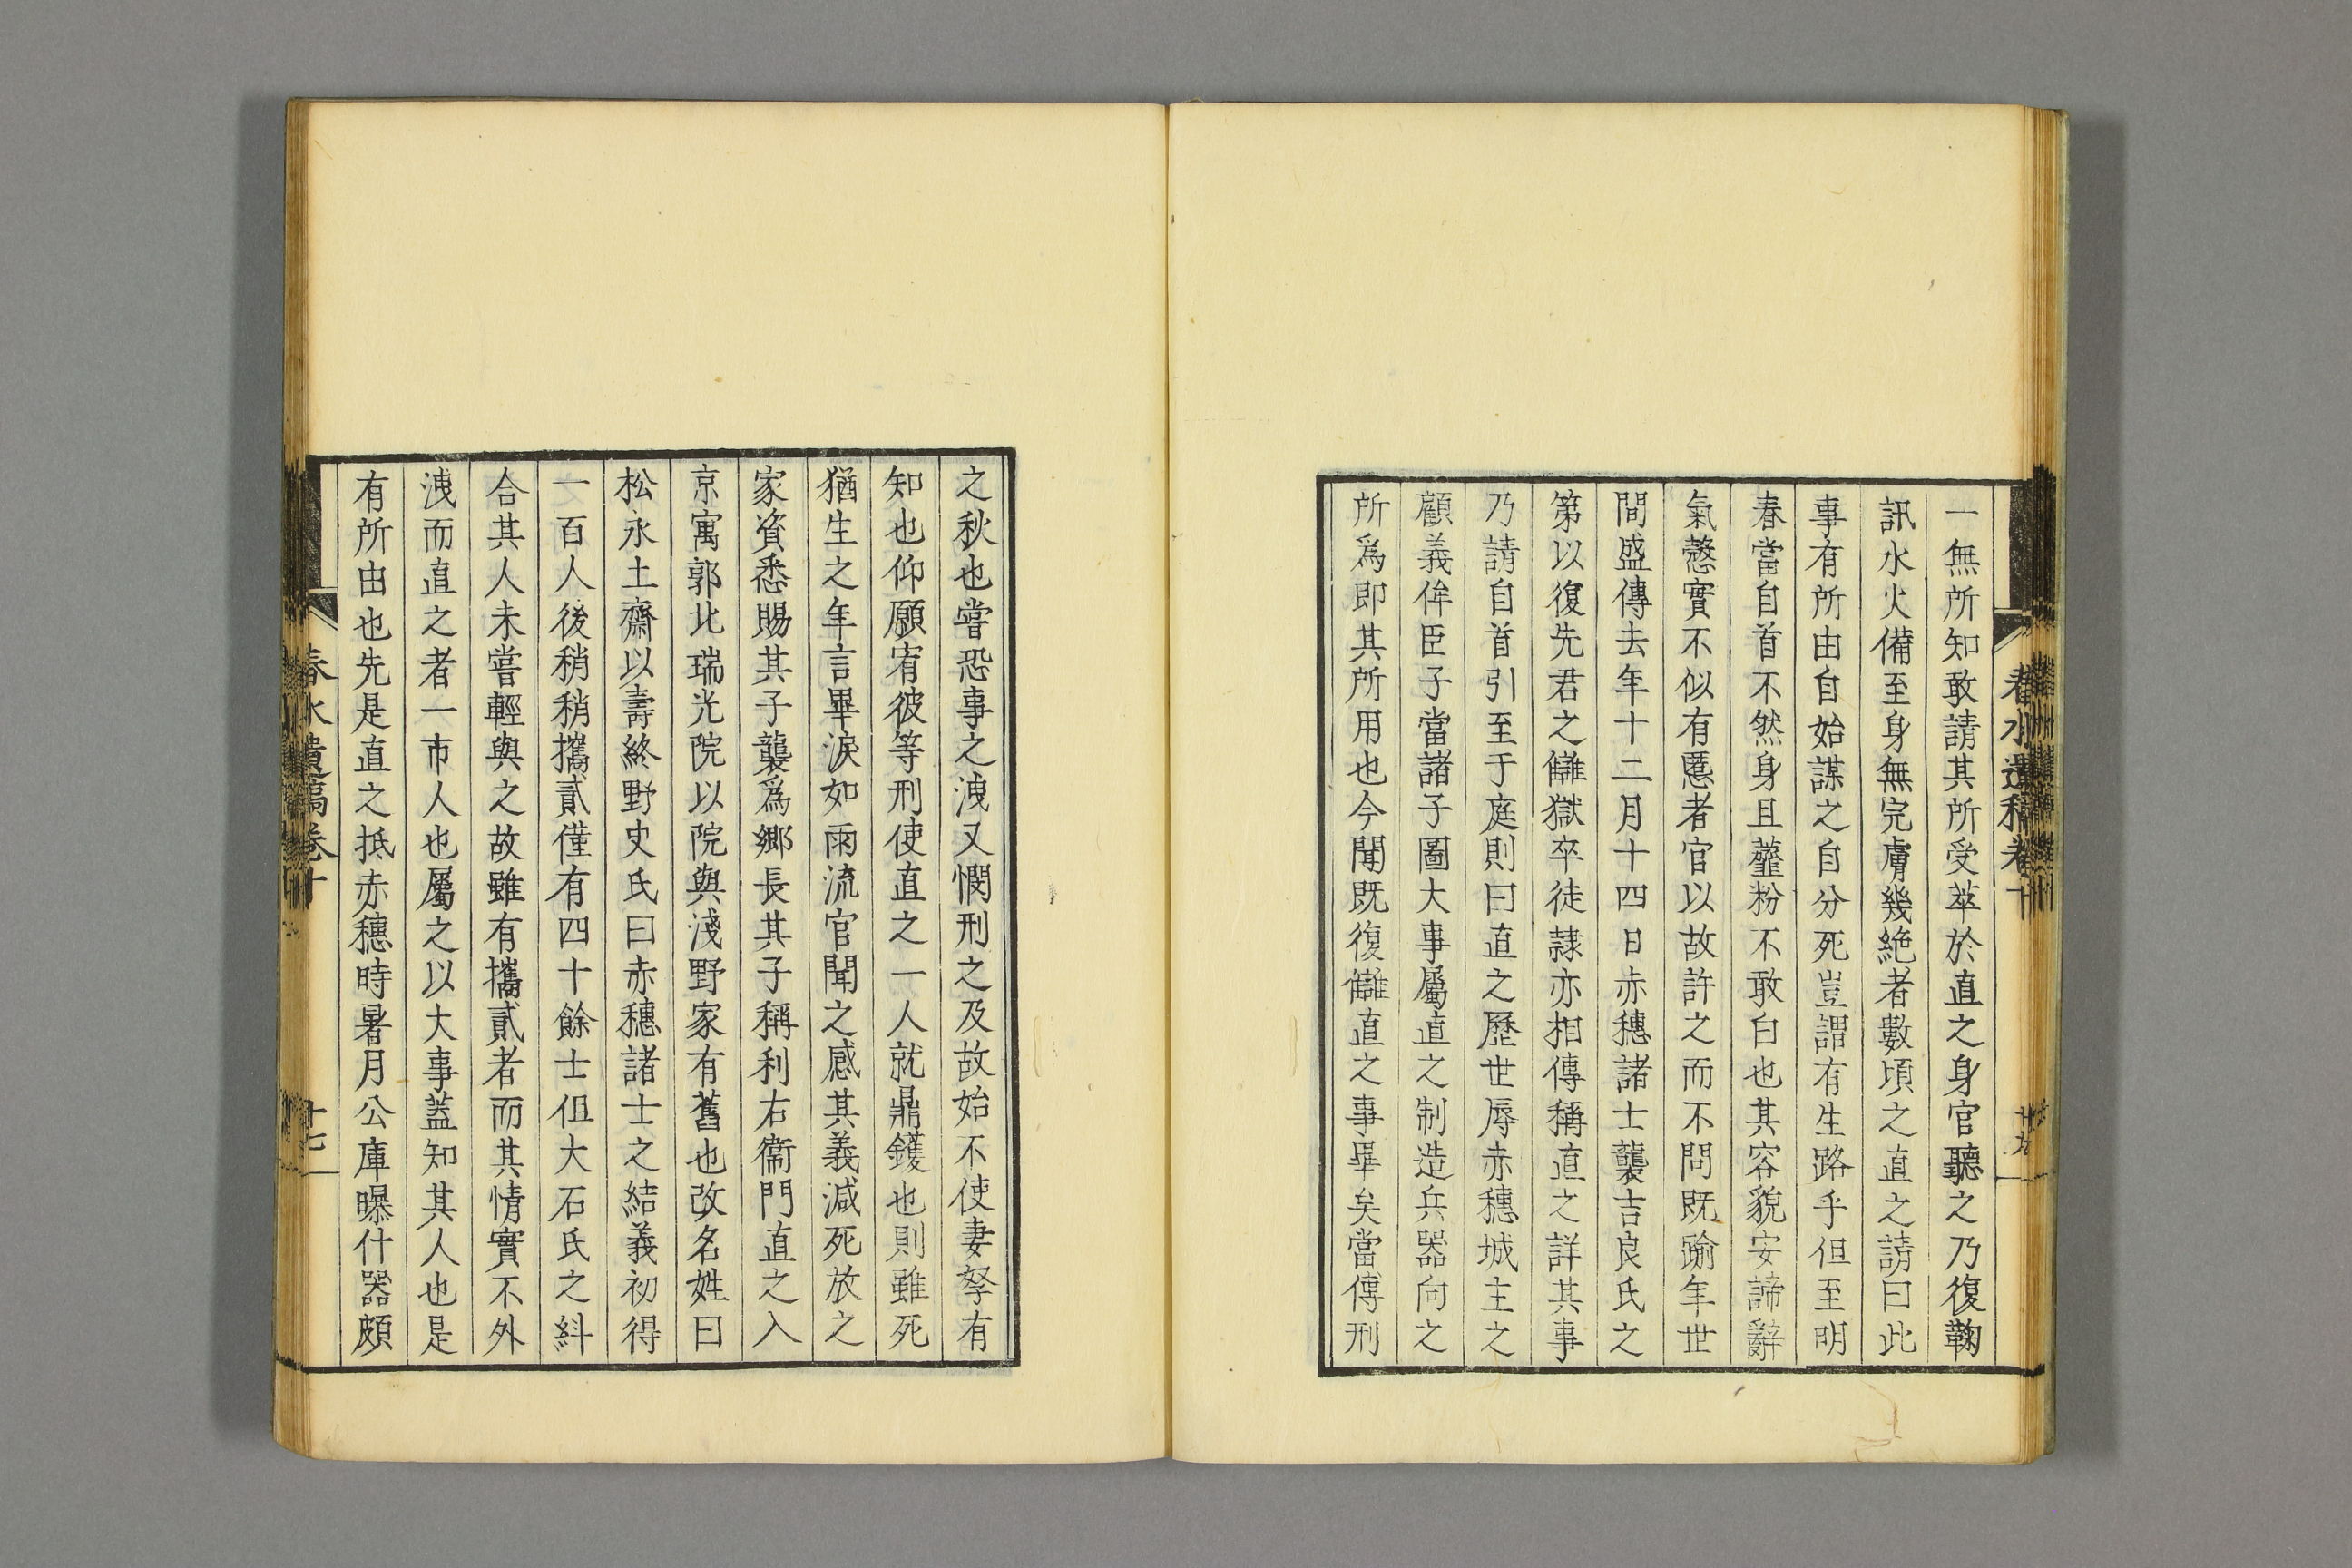 一無所知敢請其所受萃於直之身官聽之乃復鞠
訊水火備至身無完膚幾絶者數頃之直之請曰此
事有所由自始謀之自分死豈謂有生路乎但至明
春當自首不然身且虀粉不敢白也其容貌安諦辭
氣愨實不似有慝者官以故許之而不問既踰年世
間盛傳去年十二月十四日赤穗諸士襲吉良氏之
第以復先君之讎獄卒徒隷亦相傳稱直之詳其事
乃請自首引至于庭則曰直之歷世辱赤穗城主之
顧義侔臣子當諸子圖大事屬直之制造兵器向之
所爲即其所用也今聞既復讎直之事畢矣當傳刑
之秋也嘗恐事之洩又憫刑之及故始不使妻孥有
知也仰願宥彼等刑使直之一人就鼎鑊也則雖死
猶生之年言畢淚如雨流官聞之感其義減死放之
家資悉賜其子襲爲鄉長其子稱利右衞門直之入
京寓郭北瑞光院以院與淺野家有舊也改名姓曰
松永土齋以壽終野史氏曰赤穗諸士之結義初得
一百人後稍稍攜貳僅有四十餘士伹大石氏之糾
合其人未嘗輕與之故雖有攜貳者而其情實不外
洩而直之者一市人也屬之以大事蓋知其人也是
有所由也先是直之抵赤穗時暑月公庫曝什器頗
春水遺稿卷十
十七